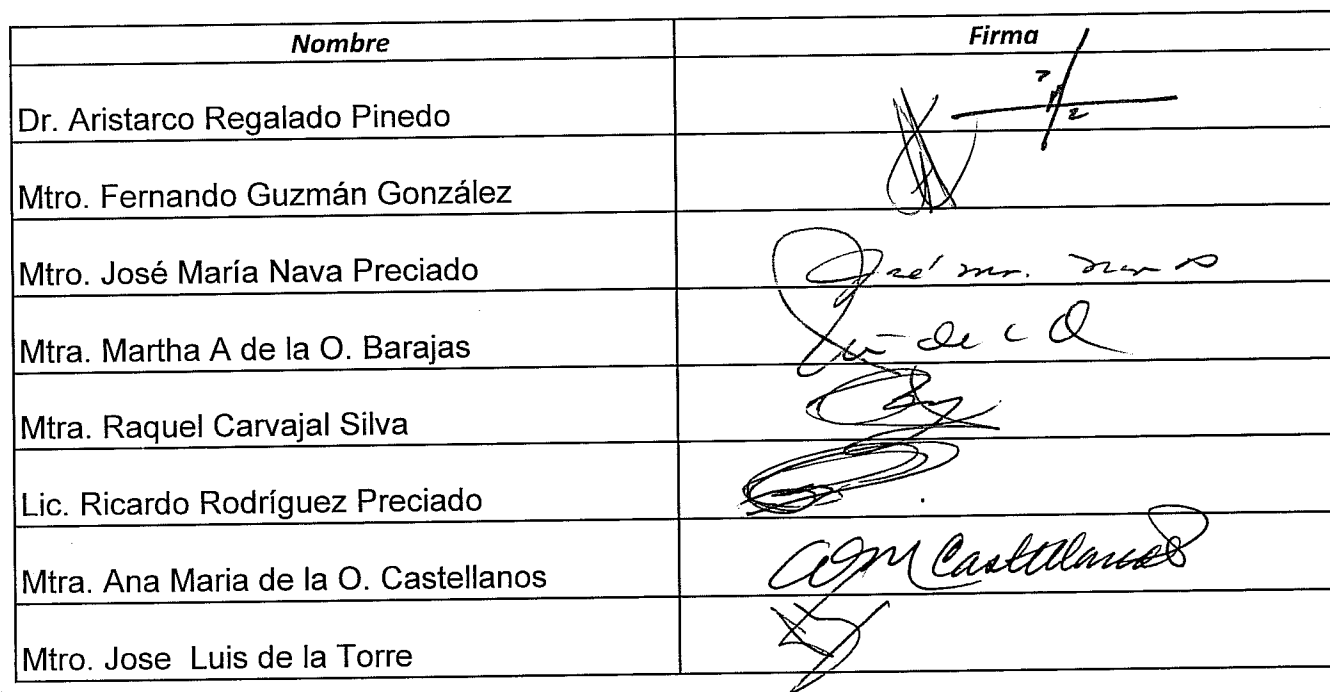 Nombre Firma
Dr. Aristarco Regalado Pinedo
Mtro. Fernando Guzmán González
Mtro. José María Nava Preciado José
Mtra. Martha A de la O. Barajas
Mtra. Raquel Carvajal Silva
Lic. Ricardo Rodríguez Preciado
Mtra. Ana Maria de la O. Castellanos Castellanos
Mtro. Jose Luis de la Torre